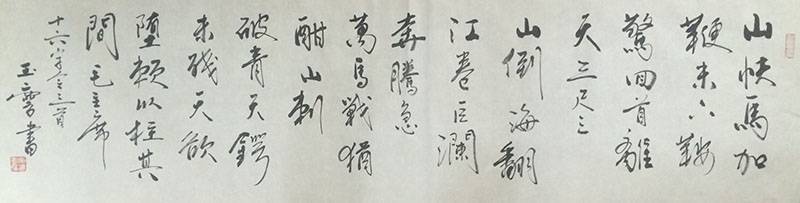 山快馬加
鞭未下鞍
驚回首離
天三尺三
山倒海翻
江卷巨瀾
奔騰急
萬馬戰猶
酣山刺
破青天鍔
未殘天欲
墮賴以柱其
間毛主席
十六字令三首
王書